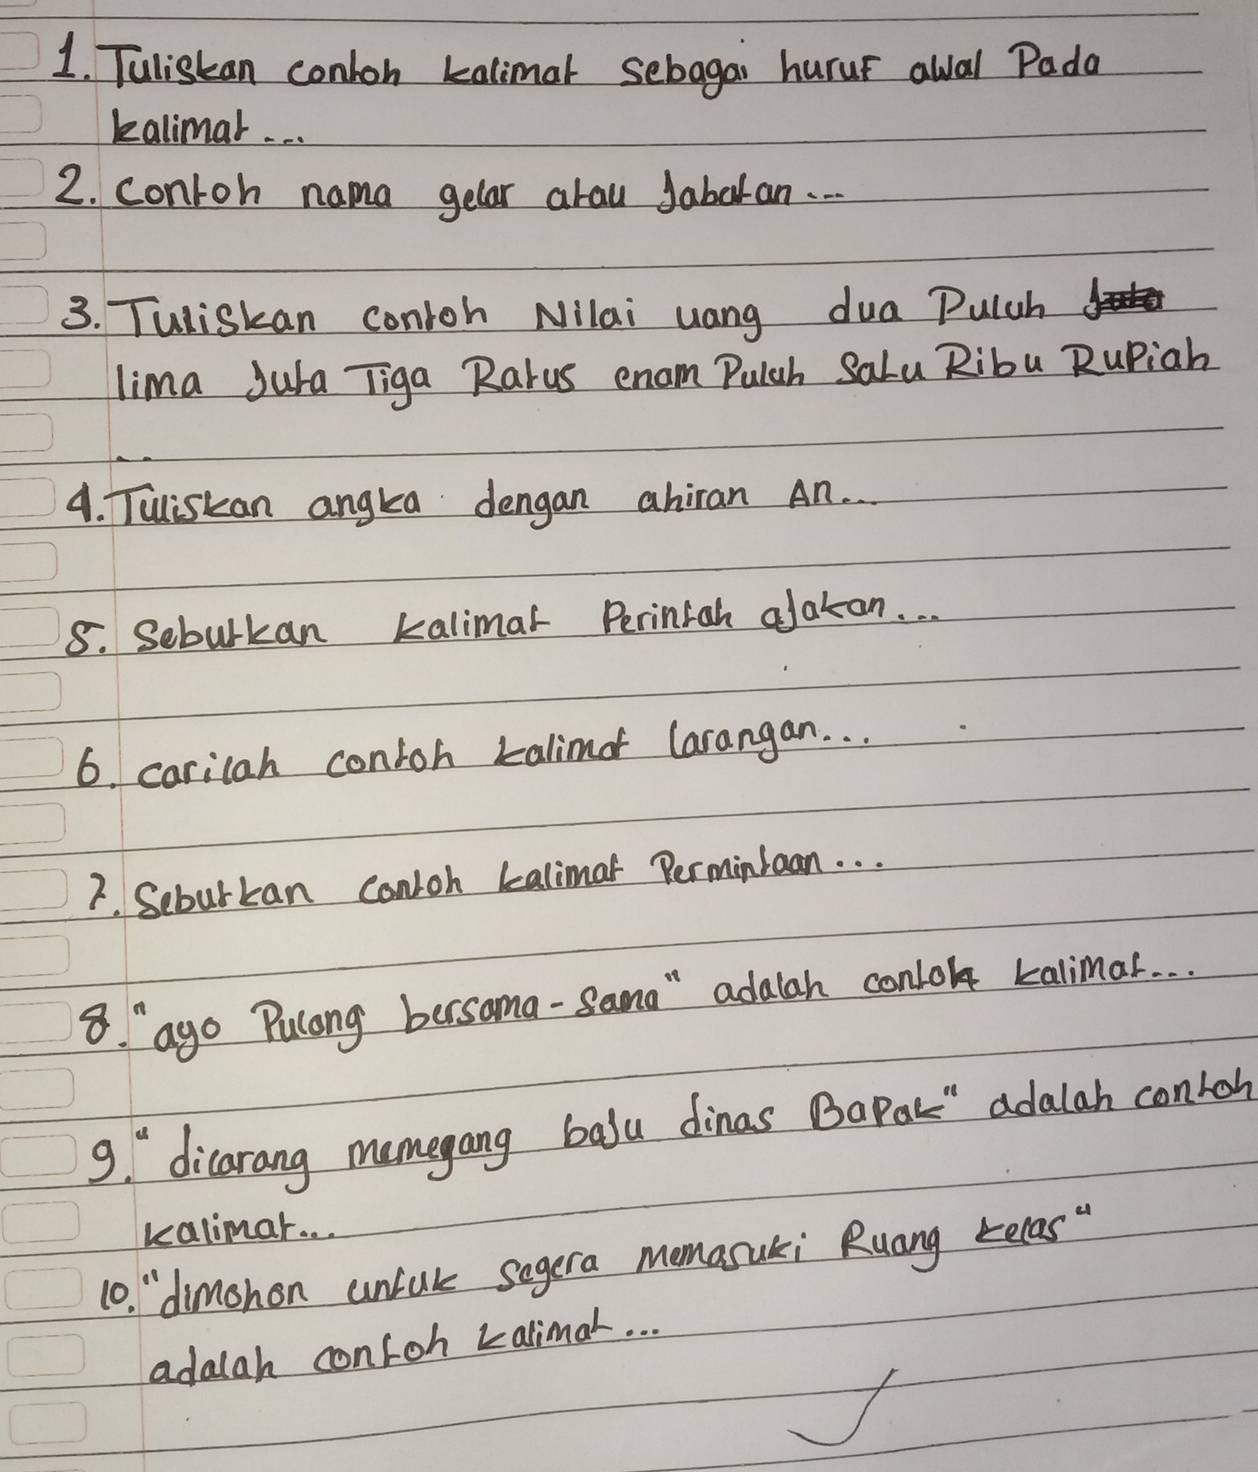 1. Tuliskan contoh kalimat sebagai huruf awal Pada
kalimat...
2. contoh nama gelar atau Jabatan...
3. Tuliskan contoh Nilai uang dua Puluh
lima Juta Tiga Ratus enam Puluh Satu Ribu Rupiah
...
4. Tuliskan angka dengan ahiran An...
5. Sebutkan kalimat Perintah aJakan...
6. carilah contoh kalimat larangan...
7. Sebutkan contoh kalimat Permintaan...
8. "ayo Pulang bersama-sama" adalah contoh kalimat...
9. "dilarang memegang baJu dinas BaPak" adalah contoh
kalimat...
10. "dimohon untuk segera memasuki Ruang kelas"
adalah contoh kalimat...